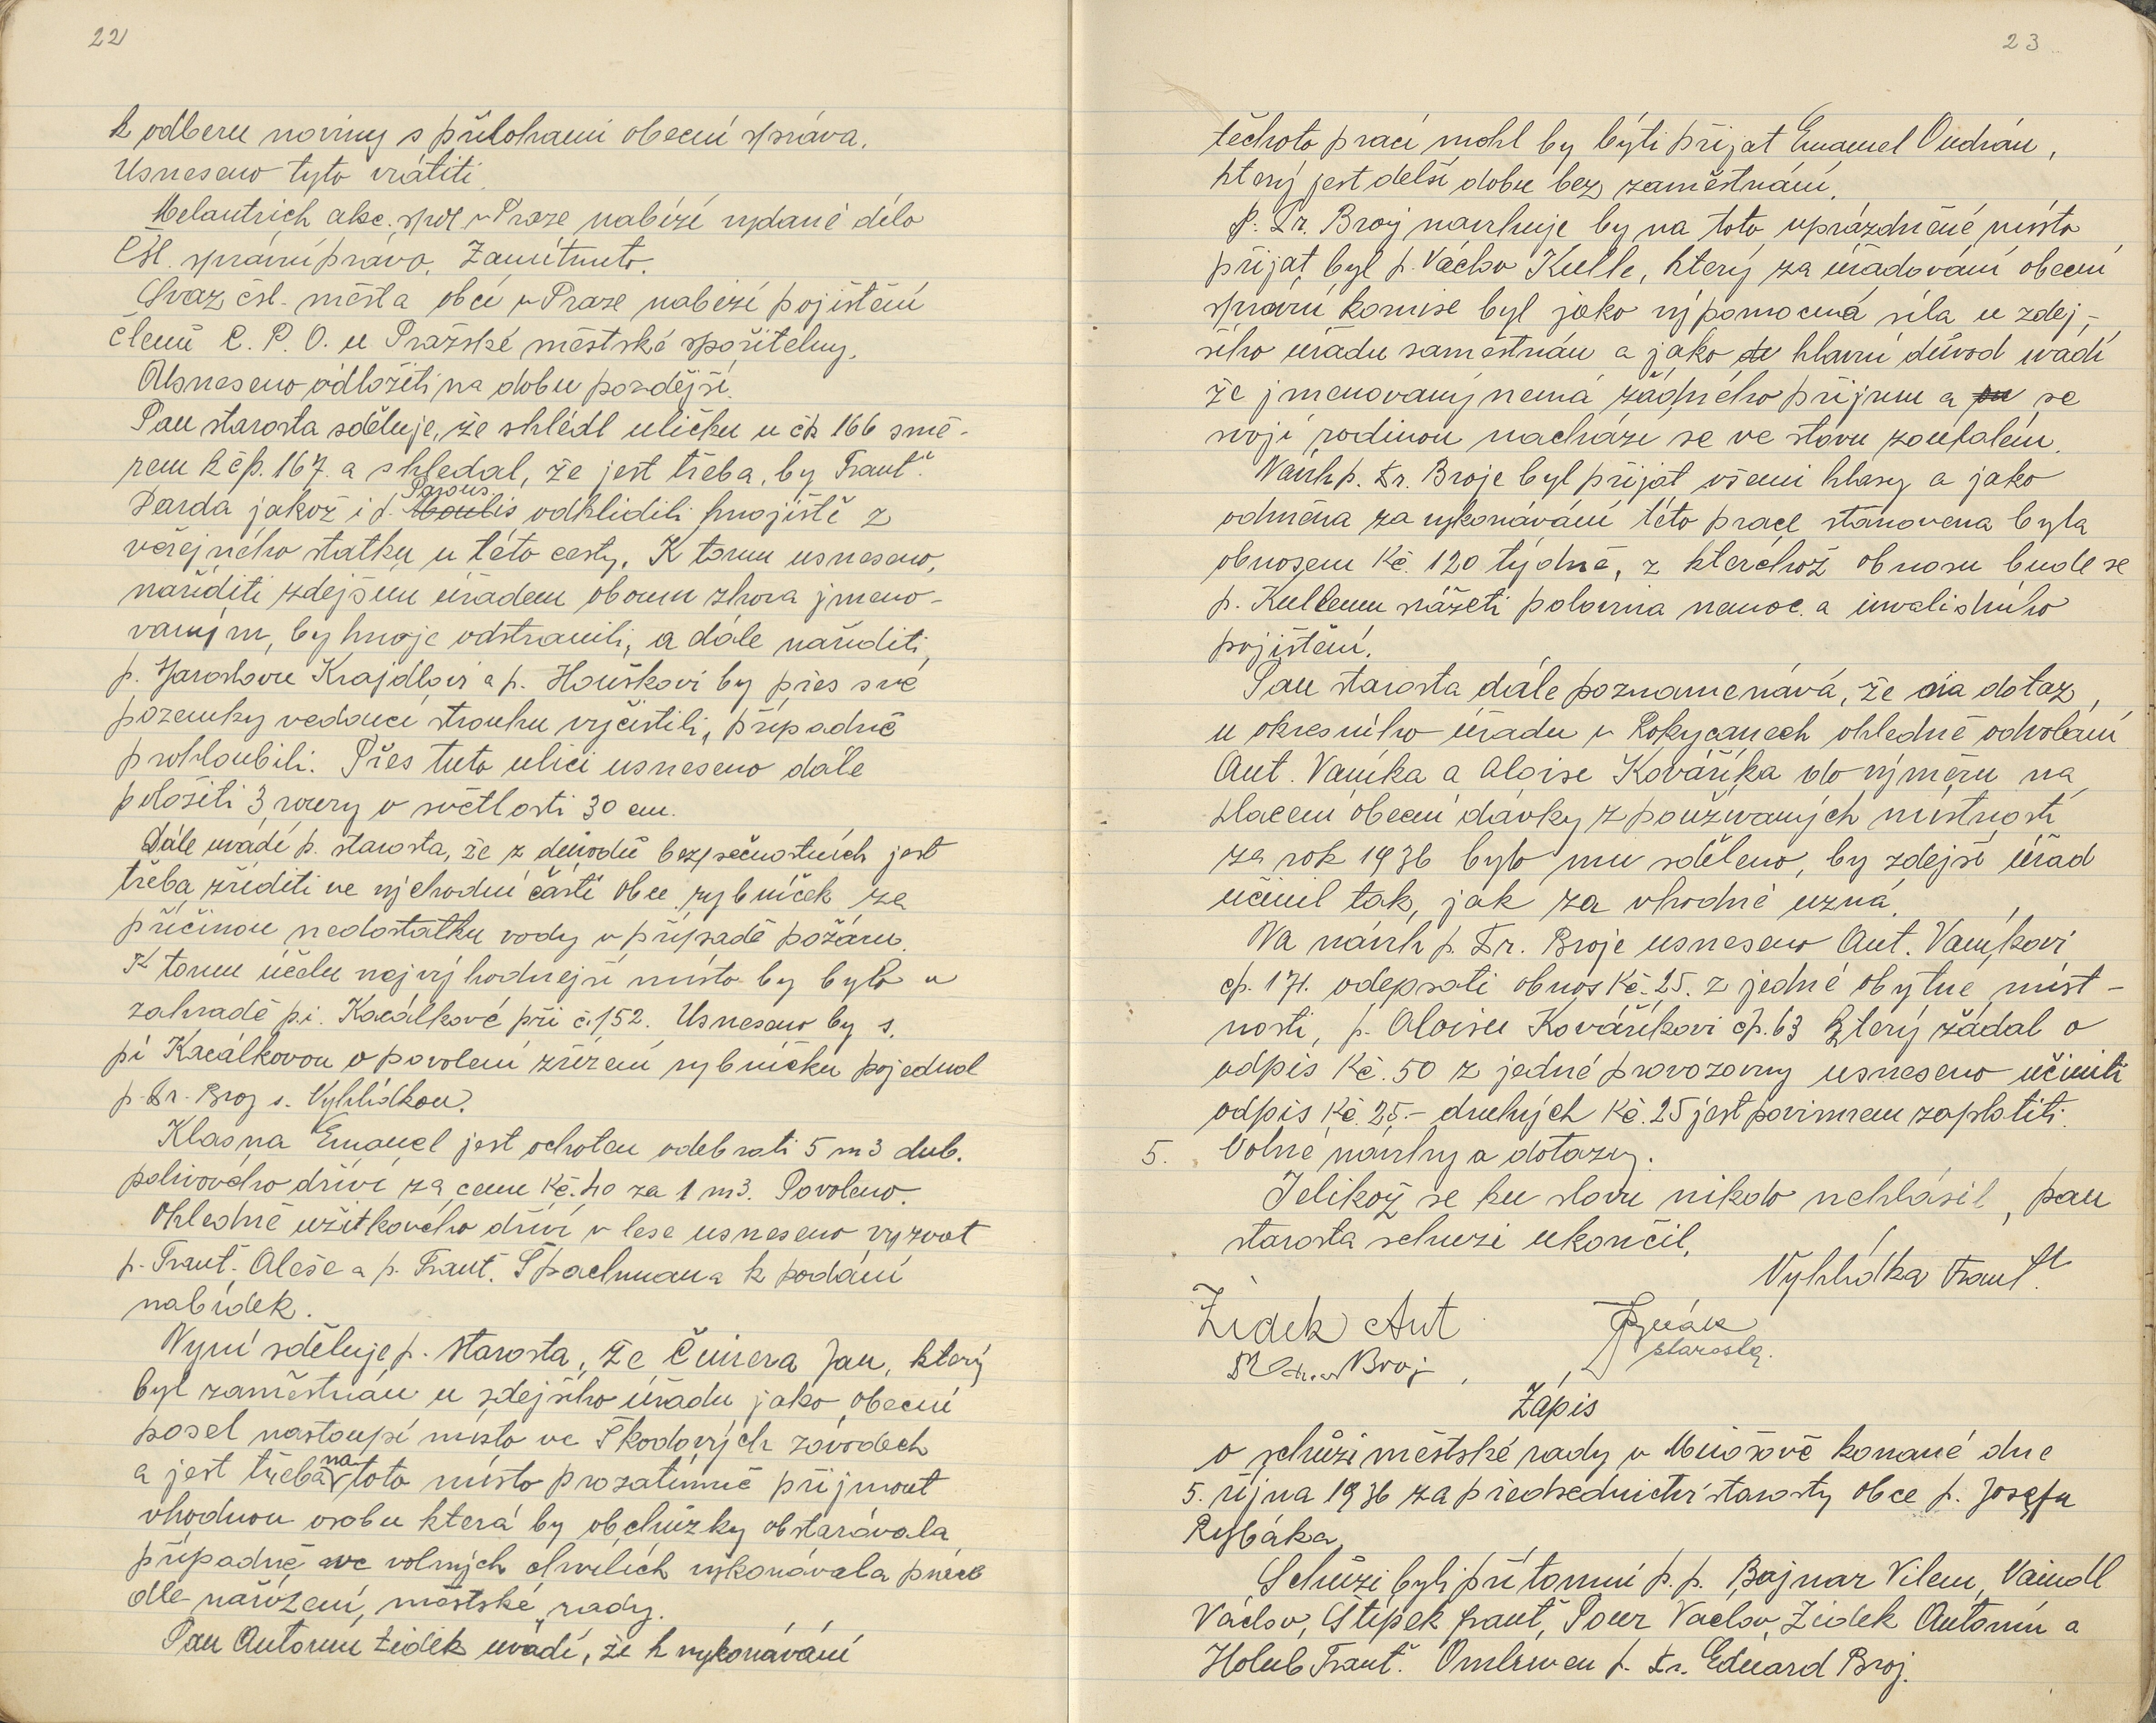 22
k odberu noviny s přílohami obecní správa.
Usneseno tyto vrátiti.
Melantrich akc. spol v Praze nabízí vydané dílo
Čsl. správní právo. Zamítnuto.
Svaz čsl. měst a obcí v Praze nabízí pojištění
členů C. P. O. u Pražské městské spořitelny.
Usneseno odložiti na dobu pozdější.
Pan starosta sděluje, že shlédl uličku u čp. 166 smě-
rem k čp. 167. a shledal, že jest třeba, by Frant.
Parda jakož i p. Parous odklidili hnojiště z
veřejného statku u této cesty. K tomu usneseno,
naříditi zdejším úřadem oboum zhora jmeno-
vaným, by hnoje odstranili, a dále naříditi,
p. Jaroslavu Krajdlovi a p. Houškovi by přes své
pozemky vedoucí strouhu vyčistili, případně
prohloubili. Přes tuto ulici usneseno dále
položiti 3 roury o světlosti 30 cm.
Dále uvádí p. starosta, že z důvodů bezpečnostních jest
třeba zříditi ve východní části obce rybníček za
příčinou nedostatku vody v případě požáru.
K tomu účelu nejvýhodnejší místo by bylo v
zahradě p.í. Kacálkové při č. 152. Usneseno by s.
pí Kacálkovou o povolení zřízení rybníčku pojednal
p. Fr. Broj s. Vyhlídkou.
Klasna Emanuel jest ochoten odebrati 5 m3 dub.
palivového dříví za cenu Kč. 40 za 1 m3. Povoleno.
Ohledně užitkového dříví v lese usneseno vyzvat
p. Frant. Aleše a p. Frant. Špachmana k podání
nabídek.
Nyní sděluje p. starosta, že Čmirera Jan, který
byl zaměstnán u zdejšího úřadu jako obecní
posel nastoupí místo ve Škodových závodech
a jest třeba na toto místo prozatímně přijmout
vhodnou osobu která by obchůzky obstarávala
případně ve volných chvílích vykonávala práce
dle nařízení, městské rady.
Pan Antonín Židek uvádí, že k vykonávání
23
těchoto prací mohl by býti přijat Emanuel Oudrán,
který jest delší dobu bez zaměstnání.
P. Fr. Broj navrhuje by na toto uprázdněné místo
přijat byl p. Václav Kulle, který za úřadování obecní
správní komise byl jako výpomocná síla u zdej-
šího úřadu zaměstnán a jako hlavní důvod uvádí
že jmenovaný nemá žádného příjmu a se
svojí rodinou nachází se ve stavu zoufalém.
Návrh p. Fr. Broje byl přijat všemi hlasy a jako
odměna za vykonávání této práce stanovena byla
obnosem Kč. 120 týdně, z kteréhož obnosu bude se
p. Kullemu sražeti polovina nemoc. a invalidního
pojištění.
Pan starosta dále poznamenává, že na dotaz
u okresního úřadu v Rokycanech ohledně odvolání
Ant. Vaníka a Aloise Kováříka do výměru na
placení obecní dávky z používaných místností
za rok 1936 bylo mu sděleno, by zdejší úřad
učinil tak, jak za vhodné uzná.
Na návrh p. Fr. Broje usneseno Ant. Vaníkovi
čp. 171. odepsati obnos Kč. 25. z jedné obytné míst-
nosti, p. Aloisu Kováříkovi čp. 63 který žádal o
odpis Kč. 50 z jedné provozovny usneseno učiniti
odpis Kč. 25.- druhých Kč. 25 jest povinnen zaplatiti.
5. Volné návrhy a dotazy.
Jelikož se ku slovu nikdo nehlásil, pan
starosta schuzi ukončil.
Vyhlídka Frant.
Židek Ant
starosta.
Broj
Zápis
o schůzi městské rady v Mirošově konané dne
5. října 1936 za předsednictví starosty obce p. Josefa
Rybáka.
Schůzi byli přítomni p. p. Bajnar Vilem, Vaindl
Václav, Štípek Frant, Pour Vaclav, Židek Antonín a
Holub Frant. Omluven p. Fr. Eduard Broj.